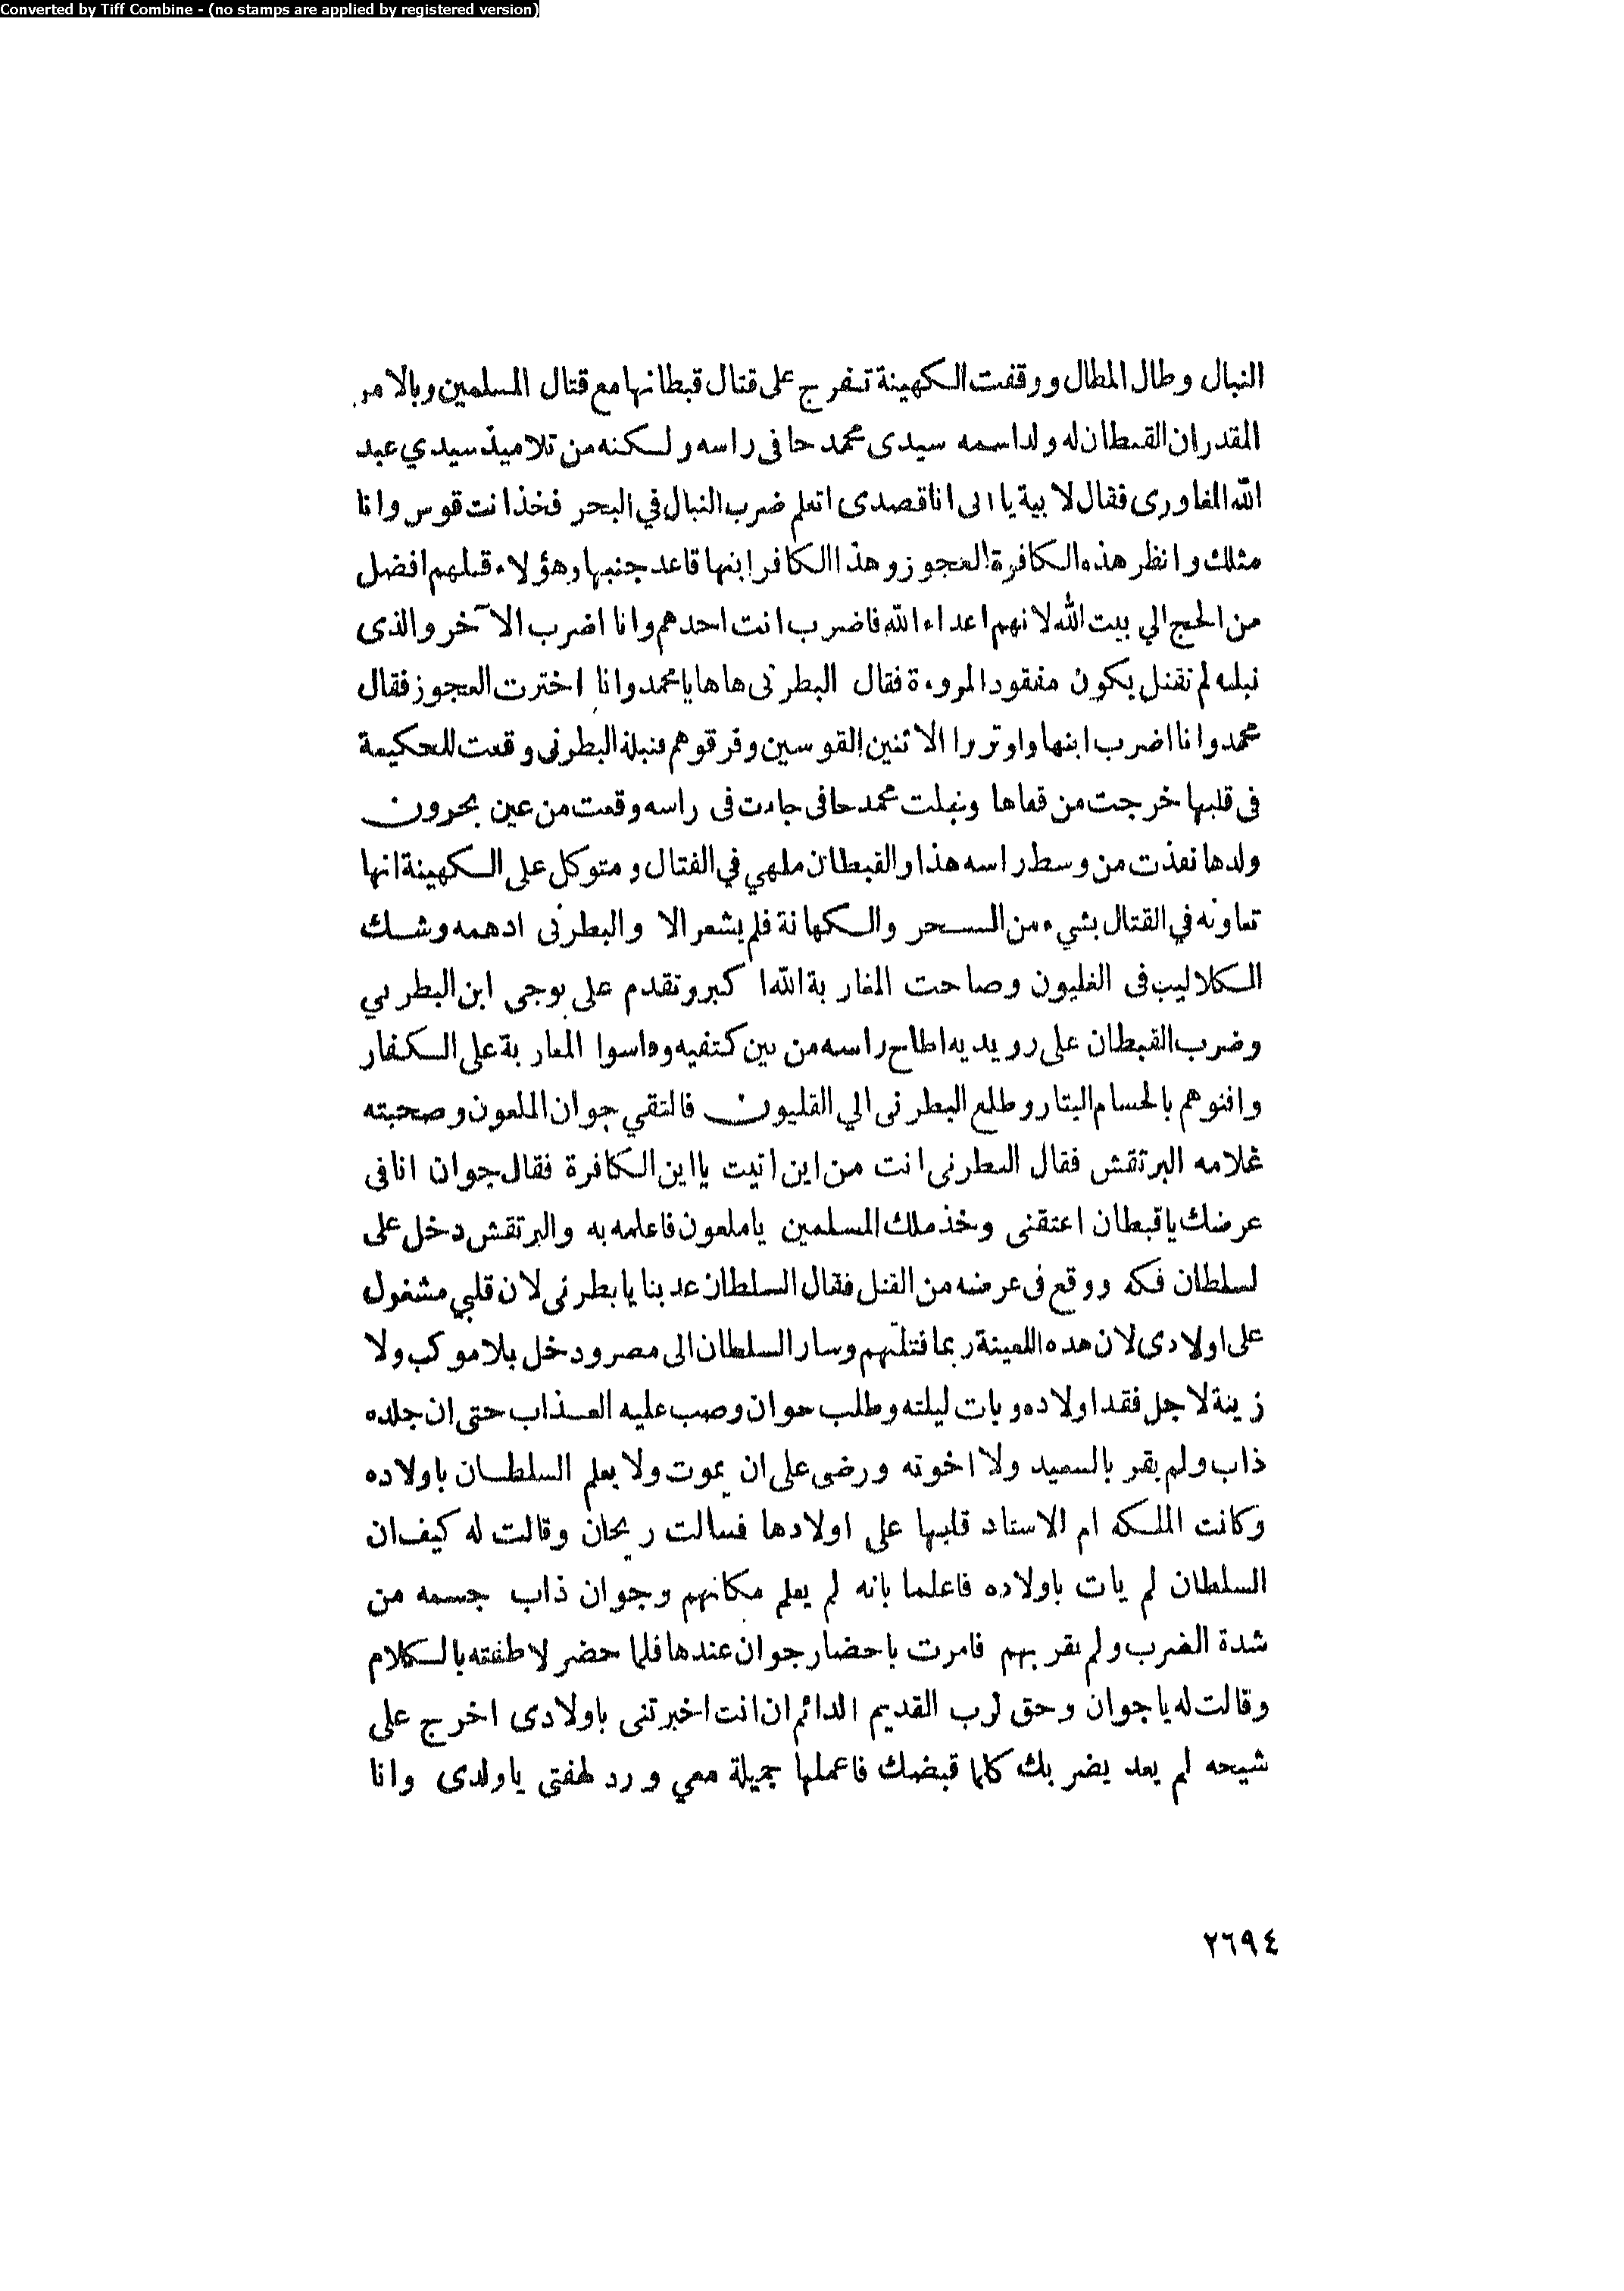 Converted by Tiff Combine - (no stamps are applied by registered version)
النبال وطال المطال ووقفت الكهينة تتفرج على قتال قبطانها مع قتال المسلمين وبالامر
المقدر ان القبطان له ولد اسمه سيدى محمد حافى راسه ولكنه من تلاميذ سيدي عبد
الله المغاورى فقال لابية يا ابى انا قصدى اتعلم ضرب النبال في البحر فخذ انت قوس وانا
مثلك وانظر هذه الكافرة العجوز وهذا الكافر ابنها قاعد جنبها وهؤلاء قتلهم افضل
من الحج الي بيت الله لانهم اعداء الله فاضرب انت احدهم وانا اضرب الآخر والذى
نبله لم تقتل يكون مفقود المروءة فقال البطرنى ها ها يا محمد وانا اخترت العجوز فقال
محمد وانا اضرب ابنها واوتروا الاثنين القوسين وفرقوهم فنبلة البطرنى وقعت للحكيمة
فى قلبها خرجت من قفاها ونبلت محمد حافى جاءت فى راسه وقعت من عين بحرون
ولدها نفذت من وسط راسه هذا والقبطان ملهي في القتال ومتوكل على الكهينة انها
تعاونه في القتال بشيء من السحر والكهانة فلم يشعر الا والبطرنى ادهمه وشك
الكلاليب فى الغليون وصاحت المغاربة الله اكبر وتقدم على بوجى ابن البطرني
وضرب القبطان على رويديه اطاح راسه من بين كتفيه وداسوا المغاربة على الكفار
وافنوهم بالحسام البتار وطلع البطرنى الي القليون فالتقي جوان الملعون وصحبته
غلامه البرتقش فقال البطرنى انت من اين اتيت يا اين الكافرة فقال جوان انا فى
عرضك يا قبطان اعتقنى وخذ ملك المسلمين يا ملعون فاعلمه به والبرتقش دخل على
لسلطان فكه ووقع فى عرضه من القتل فقال السلطان عد بنا يا بطرنى لان قلبي مشغول
على اولادى لان هده اللعينة ربما قتلتهم وسار السلطان الى مصر ودخل بلا موكب ولا
زينة لاجل فقد اولاده وبات ليلته وطلب جوان وصب عليه العذاب حتى ان جلده
ذاب ولم يقر بالسعيد ولا اخوته ورضى على ان يموت ولا يعلم السلطان باولاده
وكانت الملكه ام الاستاد قلبها على اولادها فسالت ريحان وقالت له كيف ان
السلطان لم يات باولاده فاعلما بانه لم يعلم مكانهم وجوان ذاب جسمه من
شدة الضرب ولم يقر بهم فامرت باحضار جوان عندها فلما حضر لاطفته بالكلام
وقالت له يا جوان وحق لرب القديم الدائم ان انت اخبرتنى باولادى اخرج على
شيحه لم يعد يضربك كلما قبضك فاعملها جميلة معي ورد لهفتى يا ولدى وانا
٢٦٩٤